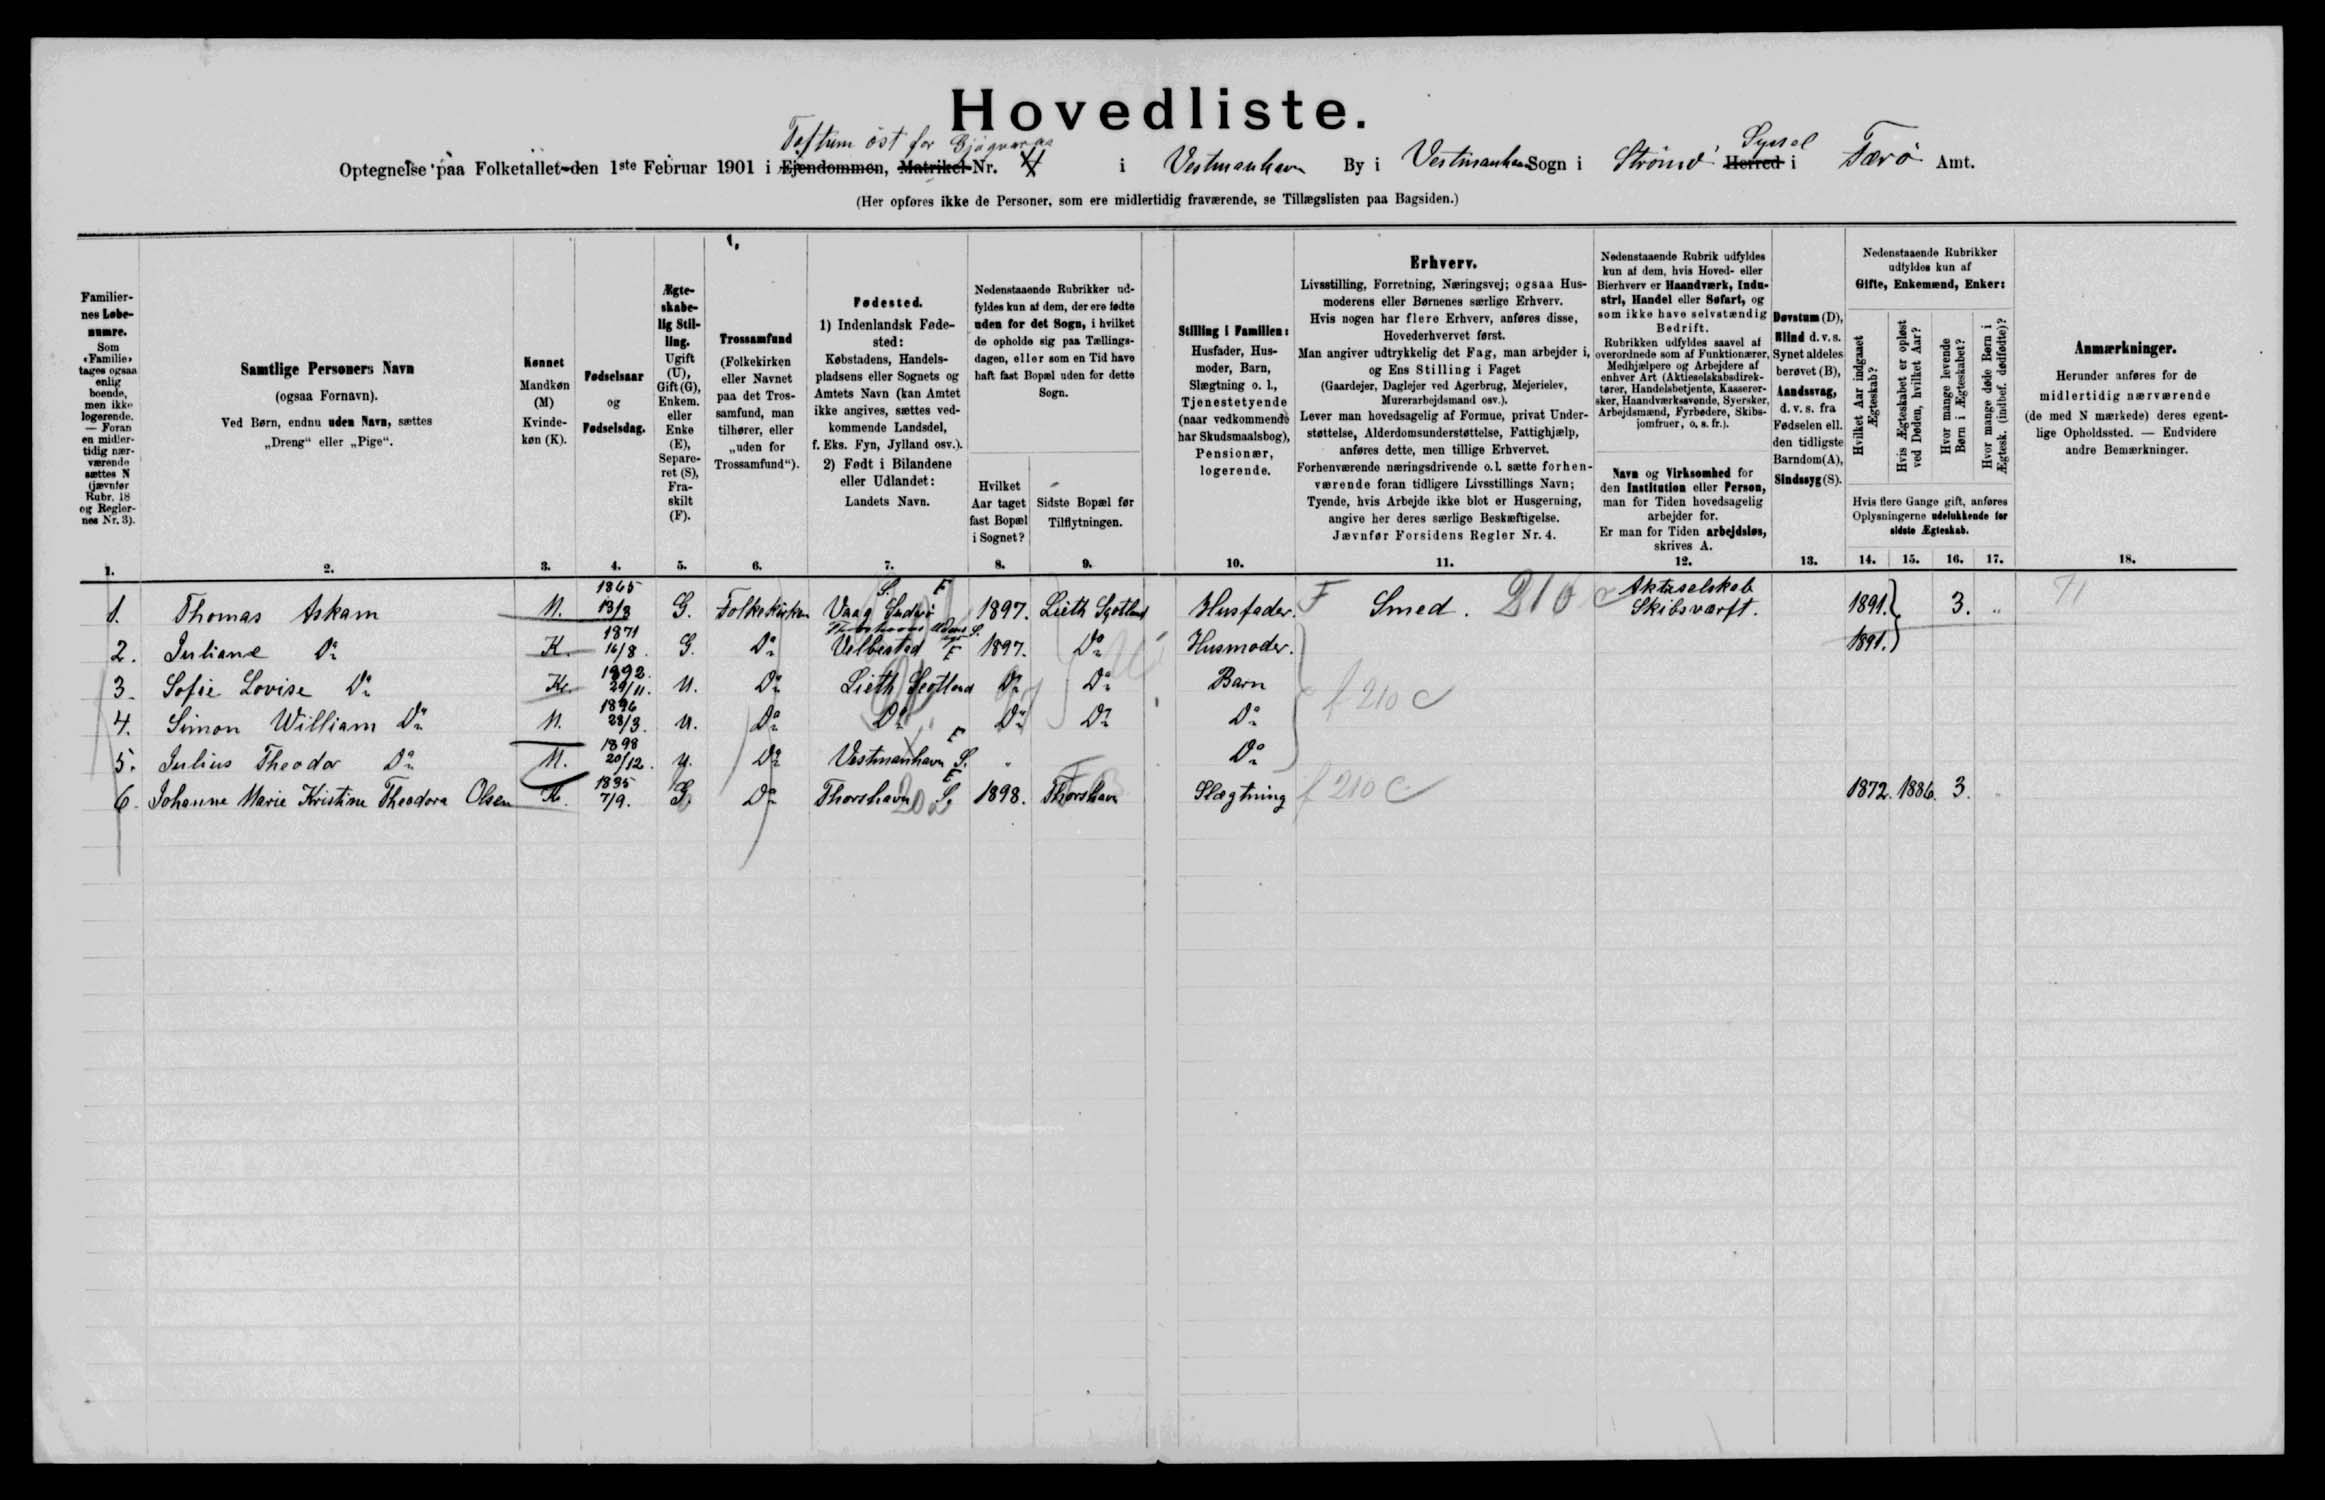 Hovedliste.
Toftum öst for Gjógvaraa
Syssel
Optegnelse paa Folketallet den 1ste Februar 1901 i Ejendommen, Matrikel-Nr. i Vestmanhavn By i Vestmanhavn Sogn i Strömö Herred i Færö Amt.
(Her opføres ikke de Personer, som ere midlertidig fraværende, se Tillægslisten paa Bagsiden.)
Familier-
nes Løbe-
numre.
Som
«Familie»
tages ogsaa
enlig
boende,
men ikke
logerende.
— Foran
en midler-
tidig nær-
værende
sættes N
(jævnfør
Rubr. 18
og Regler-
nes Nr. 3).
Samtlige Personers Navn
(ogsaa Fornavn).
Ved Børn, endnu uden Navn, sættes
„Dreng“ eller „Pige“.
Kønnet
Mandkøn
(M)
Kvinde-
køn (K).
Fødselsaar
og
Fødselsdag.
Ægte-
skabe-
lig Stil-
ling.
Ugift
(U),
Gift (G),
Enkem.
eller
Enke
(E),
Separe-
ret (S),
Fra-
skilt
(F).
Trossamfund
(Folkekirken
eller Navnet
paa det Tros-
samfund, man
tilhører, eller
„uden for
Trossamfund“).
Fødested.
1) Indenlandsk Føde-
sted:
Købstadens, Handels-
pladsens eller Sognets og
Amtets Navn (kan Amtet
ikke angives, sættes ved-
kommende Landsdel,
f. Eks. Fyn, Jylland osv.).
2) Født i Bilandene
eller Udlandet:
Landets Navn.
Nedenstaaende Rubrikker ud-
fyldes kun af dem, der ere fødte
uden for det Sogn, i hvilket
de opholde sig paa Tællings-
dagen, eller som en Tid have
haft fast Bopæl uden for dette
Sogn.
Hvilket
Aar taget
fast Bopæl
i Sognet?
Sidste Bopæl før
Tilflytningen.
Stilling i Familien:
Husfader, Hus-
moder, Barn,
Slægtning o. l.,
Tjenestetyende
(naar vedkommende
har Skudsmaalsbog),
Pensionær,
logerende.
Erhverv.
Livsstilling, Forretning, Næringsvej; ogsaa Hus-
moderens eller Børnenes særlige Erhverv.
Hvis nogen har flere Erhverv, anføres disse,
Hovederhvervet først.
Man angiver udtrykkelig det Fag, man arbejder i,
og Ens Stilling i Faget
(Gaardejer, Daglejer ved Agerbrug, Mejerielev,
Murerarbejdsmand osv.).
Lever man hovedsagelig af Formue, privat Under-
støttelse, Alderdomsunderstøttelse, Fattighjælp,
anføres dette, men tillige Erhvervet.
Forhenværende næringsdrivende o.l. sætte forhen-
værende foran tidligere Livsstillings Navn;
Tyende, hvis Arbejde ikke blot er Husgerning,
angive her deres særlige Beskæftigelse.
Jævnfør Forsidens Regler Nr. 4.
Nedenstaaende Rubrik udfyldes
kun af dem, hvis Hoved- eller
Bierhverv er Haandværk, Indu-
stri, Handel eller Søfart, og
som ikke have selvstændig
Bedrift.
Rubrikken udfyldes saavel af
overordnede som af Funktionærer,
Medhjælpere og Arbejdere af
enhver Art (Aktieselskabsdirek-
tører, Handelsbetjente, Kasserer-
sker, Haandværkssvende, Syersker,
Arbejdsmænd, Fyrbødere, Skibs-
jomfruer, o. s. fr.).
Navn og Virksomhed for
den Institution eller Person,
man for Tiden hovedsagelig
arbejder for.
Er man for Tiden arbejdsløs,
skrives A.
Døvstum (D),
Blind d. v. s.
Synet aldeles
berøvet (B),
Aandssvag,
d. v. s. fra
Fødselen ell.
den tidligste
Barndom (A),
Sindssyg (S).
Nedenstaaende Rubrikker
udfyldes kun af
Gifte, Enkemænd, Enker:
Hvilket Aar indgaaet
Ægteskab?
Hvis Ægteskabet er opløst
ved Døden, hvilket Aar?
Hvor mange levende
Børn i Ægteskabet?
Hvor mange døde Børn i
Ægtesk. (indbef. dødfødte)?
Hvis flere Gange gift, anføres
Oplysningerne udelukkende for
sidste Ægteskab.
Anmærkninger.
Herunder anføres for de
midlertidig nærværende
(de med N mærkede) deres egent-
lige Opholdssted. — Endvidere
andre Bemærkninger.
1. 2. 3. 4. 5. 6. 7. 8. 9. 10. 11. 12. 13. 14. 15. 16. 17. 18.
1865 S. F Aktieselskab
1. Thomas Askam M. 13/8 G. Folkekirken Vaag Suderö 1897. Lieth Scotland Husfader. F Smed. 210 c Skibsværft. 1891. 3. „ 71
1871
2. Juliane Do K. 16/8. G. Do Velbestad F 1897. Do Husmoder. 1891.
1892.
3. Sofie Lovise Do K. 29/11. U. Do Lieth Scotland Do Do Barn f 210 c
1896
4. Simon William Do M. 28/3. U. Do Do Do Do Do
1898 F
5. Julius Theodor Do M. 20/12. U. Do Vestmanhavn S. „ Do
1835 F
6. Johanne Marie Kristine Theodora Olsen K. 7/9. Do Thorshavn S. 1898. Thorshavn Slægtning f 210 c 1872. 1886. 3. „